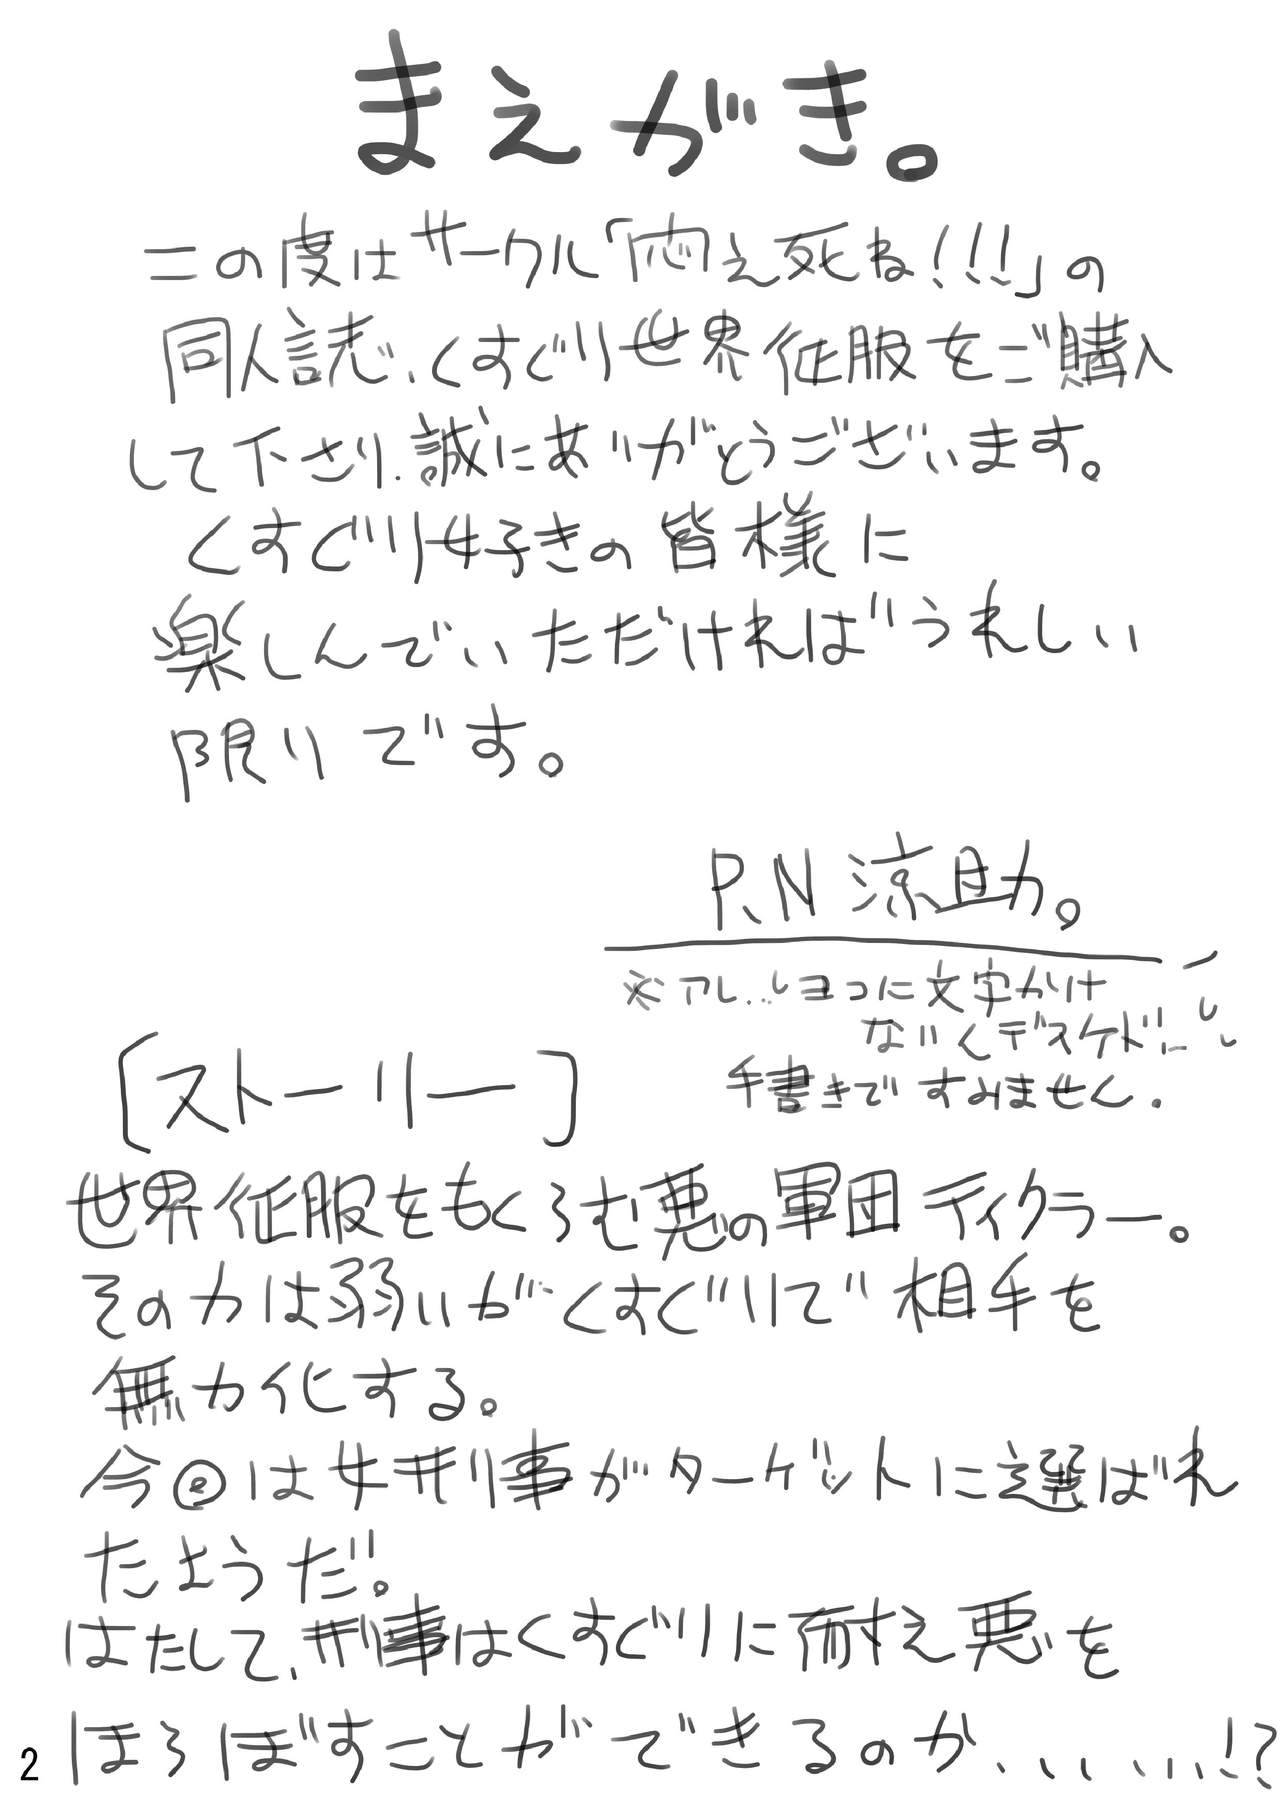 まえがき。
この度はサークル「悶え死ね!!!」の
同人誌、くすぐり世界征服をご購入
して下さり、誠にありがとうございます。
くすぐり好きの皆様に
楽しんでいただければうれしい
限りです。
P.N 涼助。
※アレ…ヨコに文字かけ
ないくデスケド…
手書きですみません.
[ストーリー]
世界征服をもくろむ悪の軍団ティクラー。
その力は弱いがくすぐりで相手を
無力化する。
今回は女刑事がターゲットに選ばれ
たようだ!。
はたして、刑事はくすぐりに耐え悪を
ほろぼすことができるのか、、、、、、!?
2